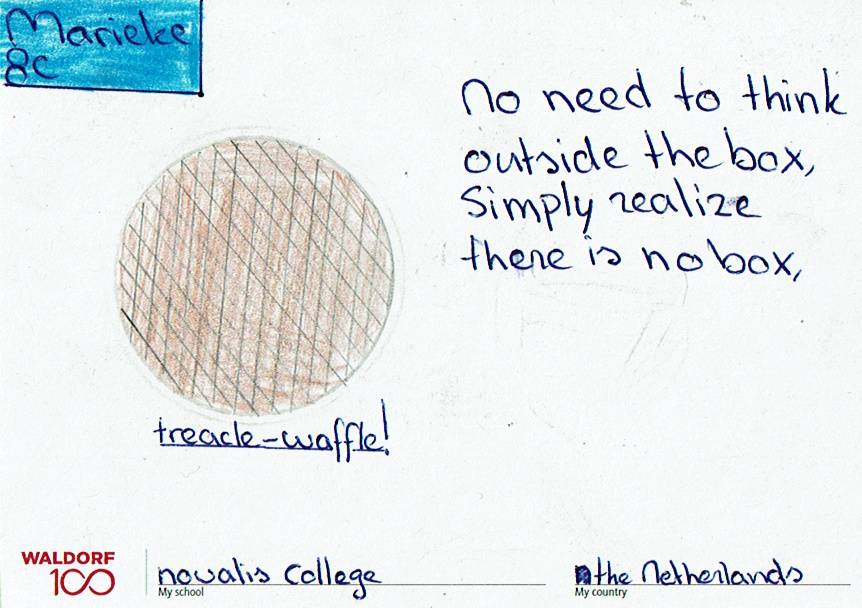 Marieke
8c
No need to think
outside the box,
Simply realize
there is no box,
treacle-waffle!
WALDORF
100
novalis College
My school
the Netherlands
My country